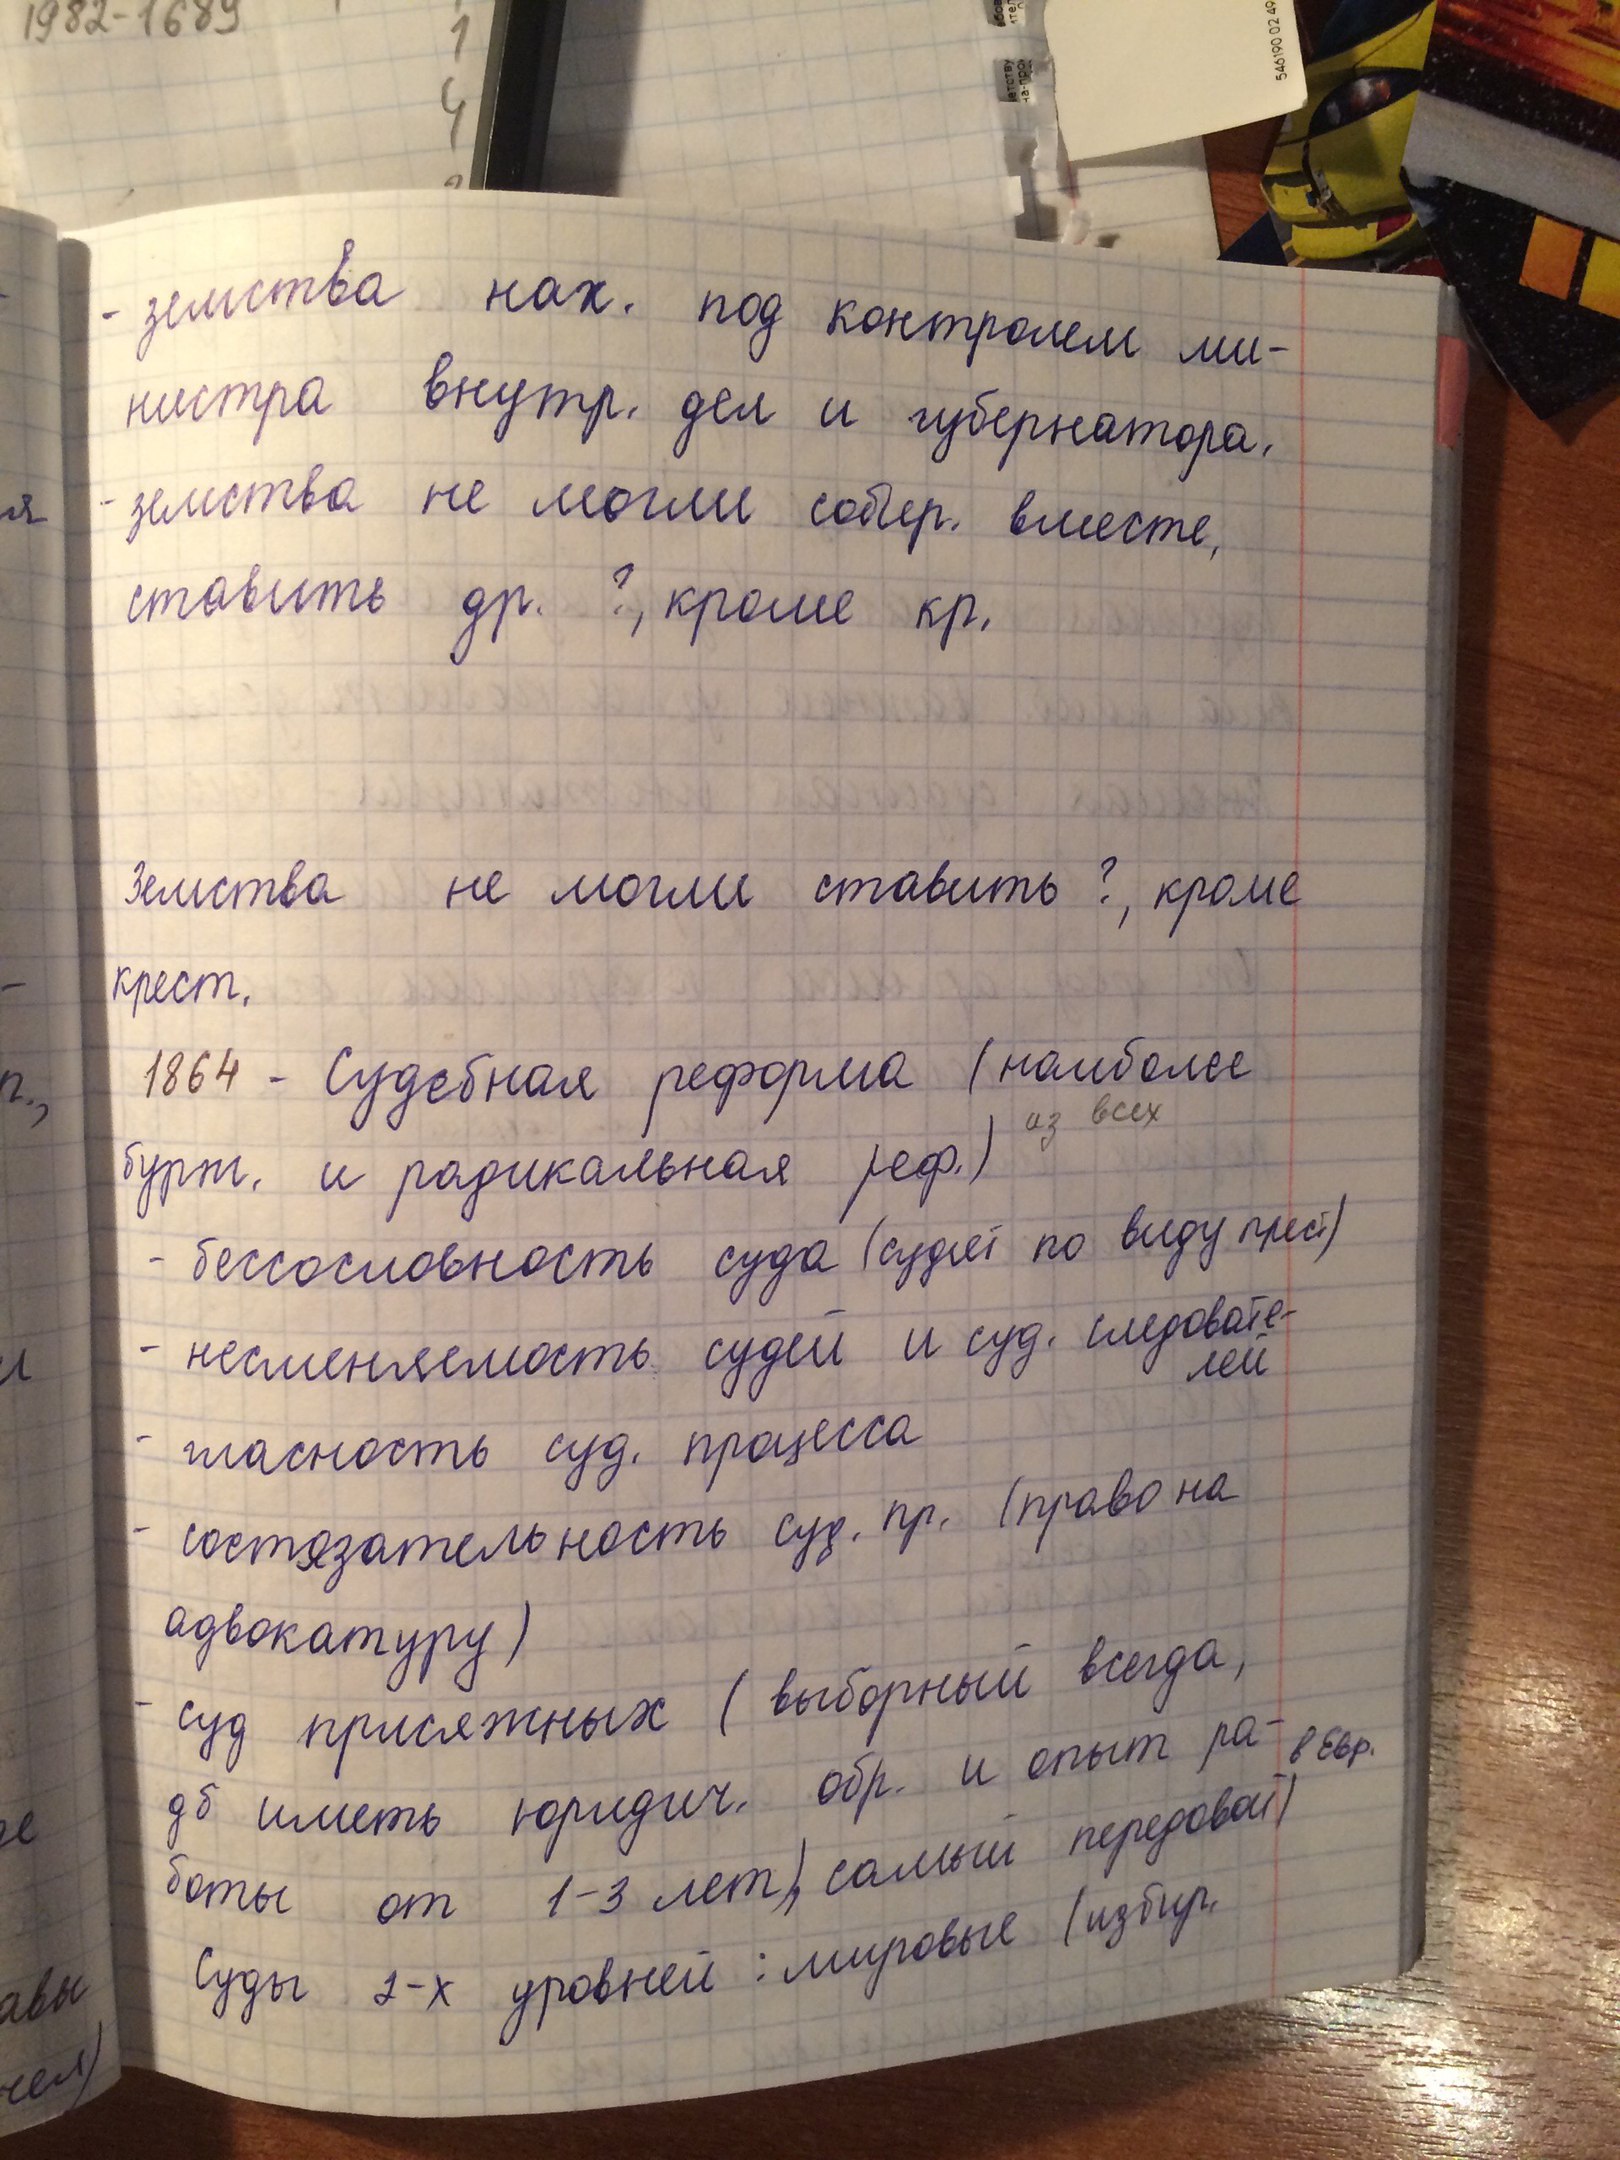 1982-1689
1
4
546190 02 49
- земства нах. под контролем ми-
нистра внутр. дел и губернатора.
- земства не могли собир. вместе,
ставить др. ?, кроме кр.
Земства не могли ставить ?, кроме
крест.
1864 - Судебная реформа (наиболее
из всех
бурж. и радикальная реф.)
- бессословность суда (судят по виду прест)
- несменяемость судей и суд. следовате-
лей
- гласность суд. процесса
- состязательность суд. пр. (право на
адвокатуру)
- суд присяжных (выборный всегда,
дб иметь юридич. обр. и опыт ра-
в Евр.
боты от 1-3 лет), самый передовой)
Суды 2-х уровней : мировые (избир.